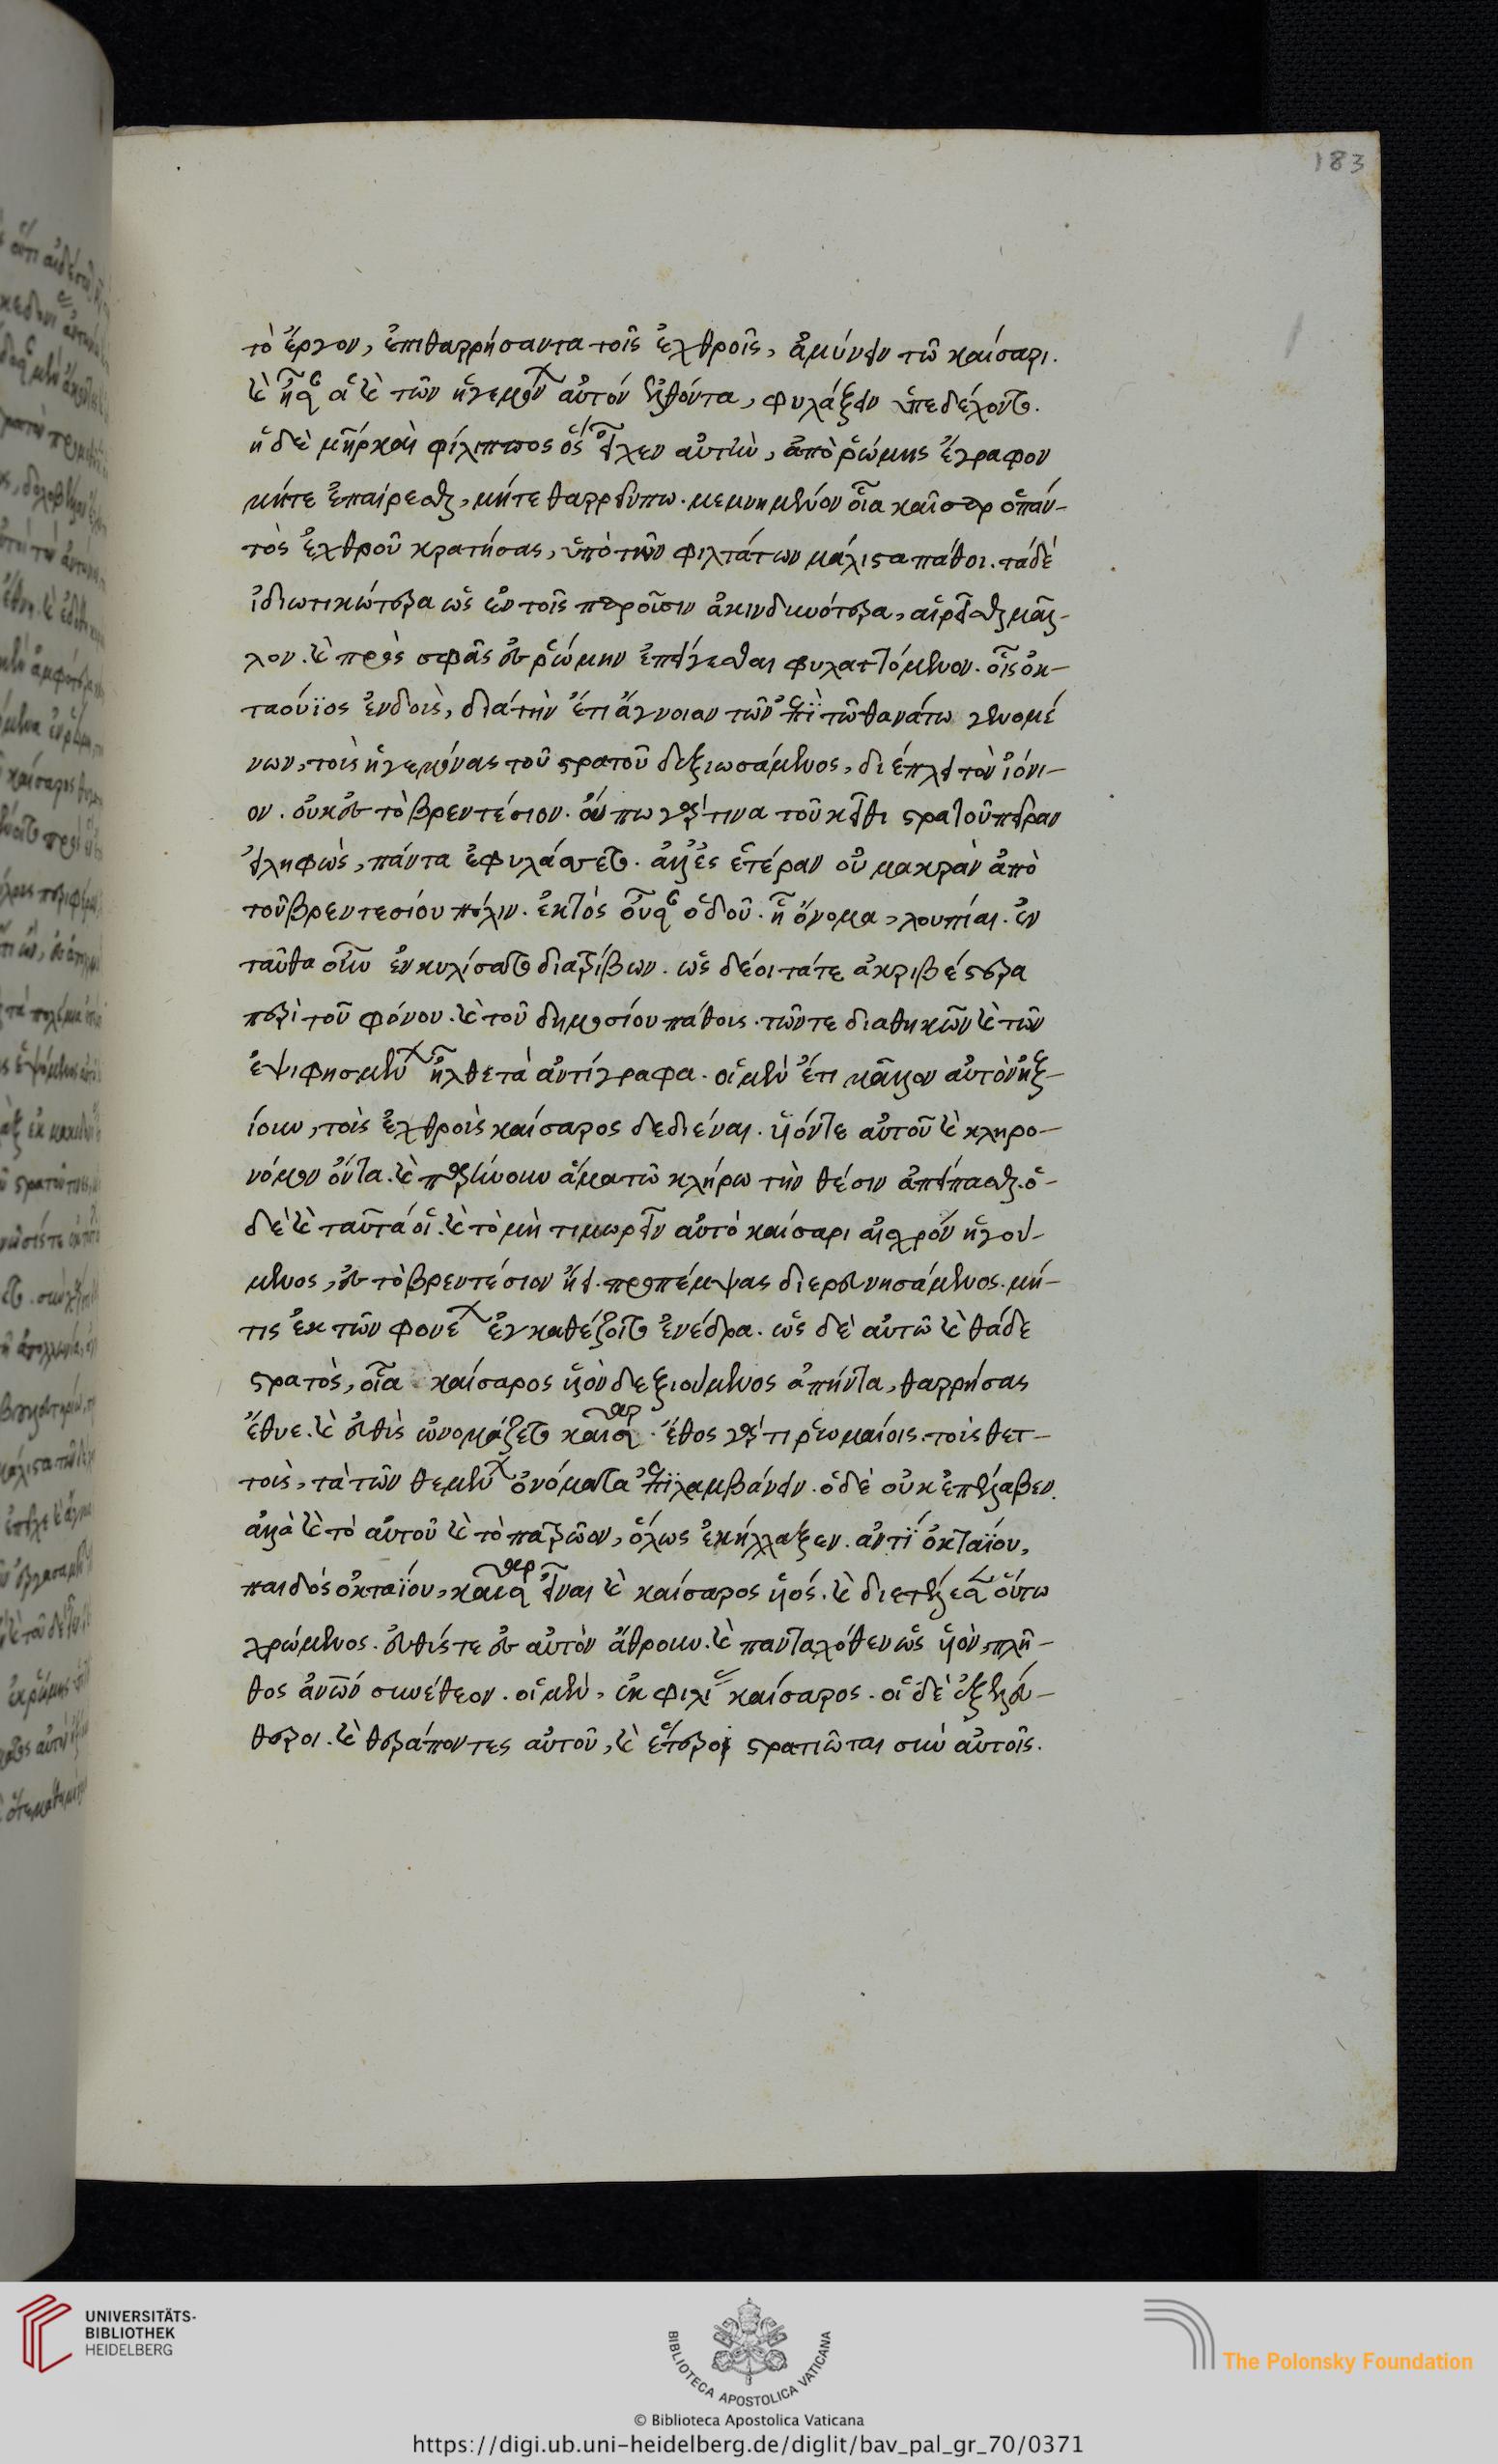 183
τὸ ἔργον, ἐπιθαρρήσαντα τοῖς ἐχθροῖς, ἀμύνειν τῶ καίσαρι.
καὶ ἦσαν οἳ καὶ τῶν ἡγεμόνων αὐτὸν ἐλθόντα, φυλάξειν ὑπεδέχοντο.
ἡ δὲ μήτηρ καὶ φίλιππος ὃς εἶχεν αὐτὴν, ἀπὸ ῥώμης ἔγραφον
μήτε ἐπαίρεσθαι, μήτε θαρρεῖν πω. μεμνημένον οἷα καῖσαρ ὁ παν-
τὸς ἐχθροῦ κρατήσας, ὑπὸ τῶν φιλτάτων μάλιστα πάθοι. τὰ δὲ
ἰδιωτικώτερα ὡς ἐν τοῖς παροῦσιν ἀκινδυνότερα, αἱρεῖσθαι μᾶλ-
λον. καὶ πρὸς σφᾶς εἰς ῥώμην ἐπείγεσθαι φυλαττόμενον. οἷς ὀκ-
ταούϊος ἐνδοὺς, διὰ τὴν ἔτι ἄγνοιαν τῶν ἐπὶ τῶ θανάτω γενομέ
νων, τοὺς ἡγεμόνας τοῦ στρατοῦ δεξιωσάμενος, διέπλει τὸν ἰόνι-
ον. οὐκ εἰς τὸ βρεντέσιον. οὔπω γάρ τινα τοῦ κεῖθι στρατοῦ πεῖραν
εἰληφὼς, πάντα ἐφυλάσσετο. ἀλλ' ἐς ἑτέραν οὐ μακρὰν ἀπὸ
τοῦ βρεντεσίου πόλιν. ἐκτὸς οὖσαν ὁδοῦ. ἧ ὄνομα, λουπίαι. ἐν
ταῦθα οὖν ἐνηυλίσατο διατρίβων. ὡς δέ οἱ τά τε ἀκριβέστερα
περὶ τοῦ φόνου. καὶ τοῦ δημοσίου πάθους. τῶν τε διαθηκῶν καὶ τῶν
ἐψηφισμένων ἦλθε τὰ ἀντίγραφα. οἱ μὲν ἔτι μᾶλλον αὐτὸν ἠξ-
ίουν, τοὺς ἐχθροὺς καίσαρος δεδιέναι. υἱόν τε αὐτοῦ καὶ κληρο-
νόμον ὄντα. καὶ παρήνουν ἅμα τῶ κλήρω τὴν θέσιν ἀπείπασθαι. ὁ-
δὲ καὶ ταῦτά οἱ. καὶ τὸ μὴ τιμωρεῖν αὐτὸ καίσαρι αἰσχρὸν ἡγού-
μενος, εἰς τὸ βρεντέσιον ἤει. προπέμψας διερευνησάμενος. μή-
τις ἐκ τῶν φονέων ἐγκαθέζοιτο ἐνέδρα. ὡς δὲ αὐτῶ καὶ ὁ τῆδε
στρατὸς, οἷα καίσαρος υἱὸν δεξιούμενος ἀπήντα, θαρρήσας
ἔθυε. καὶ εὐθὺς ὠνομάζετο καῖσαρ. ἔθος γάρ τι ῥωμαίοις. τοὺς θετ-
τοὺς, τὰ τῶν θεμένων ὀνόματα ἐπιλαμβάνειν. ὁ δὲ οὐκ ἐπέλαβεν.
ἀλλὰ καὶ τὸ αὑτοῦ καὶ τὸ πατρῶον, ὅλως ἐνήλλαξεν. ἀντὶ ὀκταΐου,
παιδὸς ὀκταΐου, καῖσαρ εἶναι καὶ καίσαρος υἱός. καὶ διετέλεσεν οὕτω
χρώμενος. εὐθύς τε ἐς αὐτὸν ἄθρουν. καὶ πανταχόθεν ὡς υἱὸν, πλῆ-
θος ἀνθρώπων συνέθεον. οἱ μὲν, ἐκ φιλίας καίσαρος. οἱ δὲ ἐξελεύ-
θεροι. καὶ θεράποντες αὐτοῦ, καὶ ἕτεροι στρατιῶται σὺν αὐτοῖς.
UNIVERSITÄTS-
BIBLIOTHEK
HEIDELBERG
BIBLIOTECA APOSTOLICA VATICANA
The Polonsky Foundation
© Biblioteca Apostolica Vaticana
https://digi.ub.uni-heidelberg.de/diglit/bav_pal_gr_70/0371